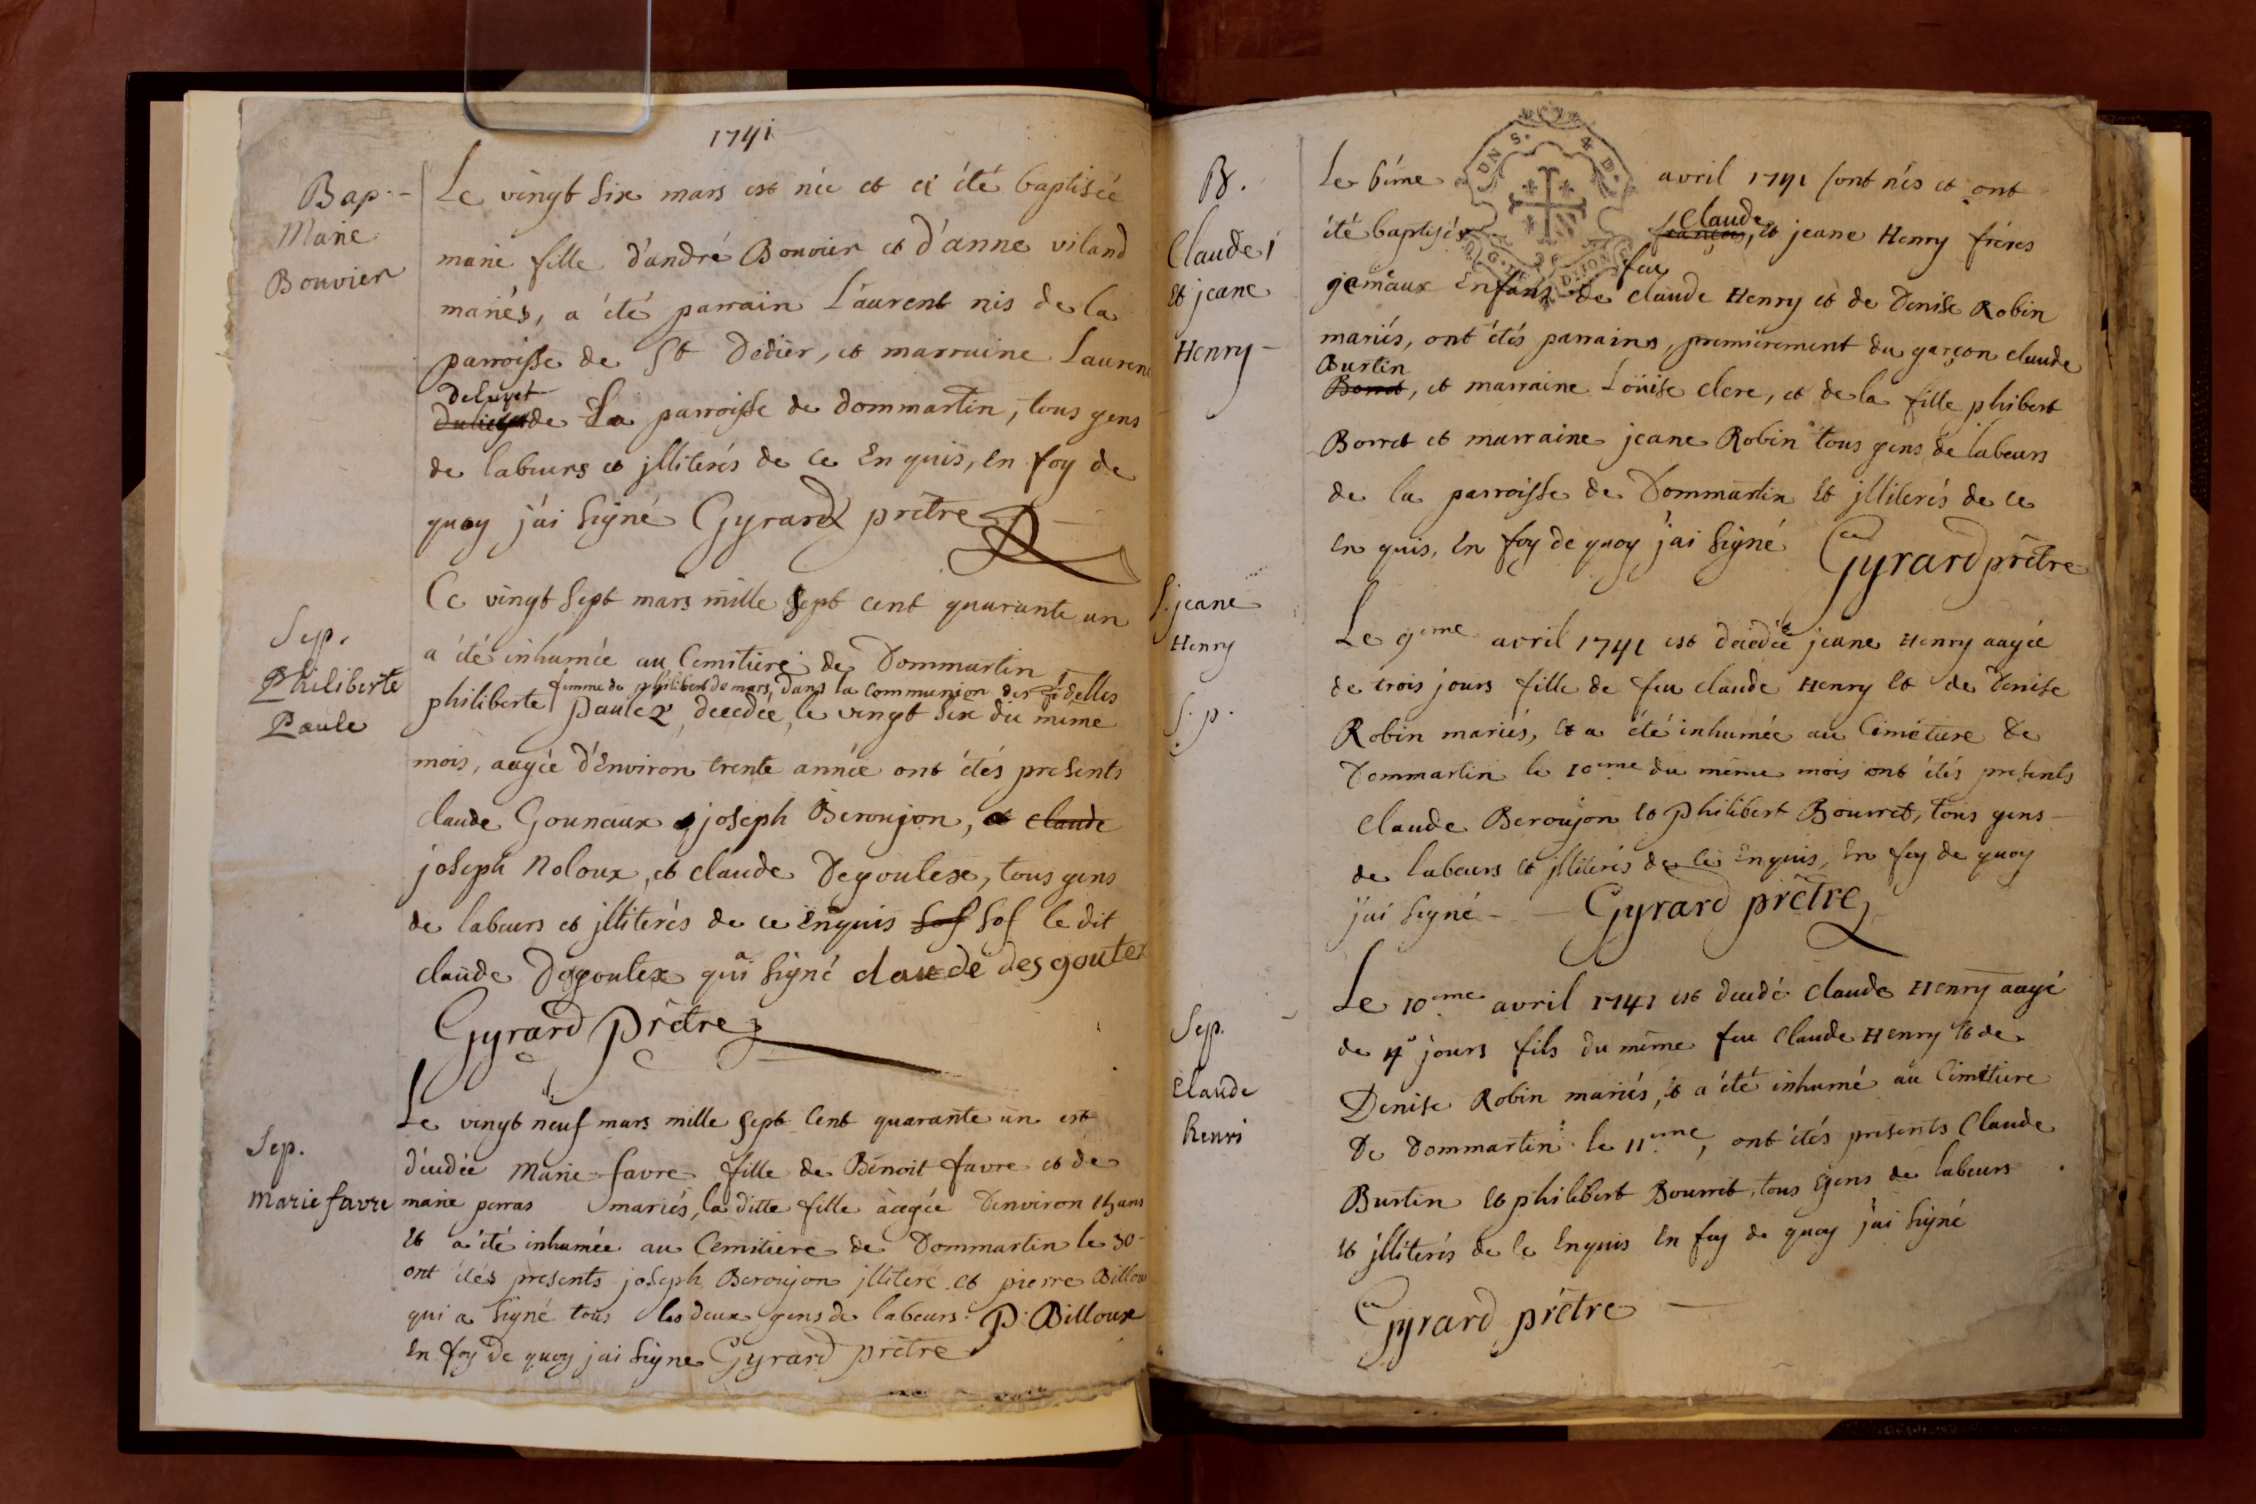 1741
Bap.
Marie
Bouvier
Le vingt six mars est née et a été baptisée
marie fille d'andré Bouvier et d'anne viland
mariés, a été parrain Laurent nis de la
parroisse de St Didier, et marraine Laurence
Delayet
de La parroisse de dommartin, tous gens
de labeurs et jlliterés de ce enquis, en foy de
quoy j'ai signé Gyrard prêtre
Sep.
Philiberte
Paule
Ce vingt sept mars mille sept cent quarante un
a été inhumée au Cemitiere de Dommartin
femme de philibert de mars, dans la communion des fidelles
philiberte Paule, decedée, le vingt six du meme
mois, aagée d'environ trente année ont étés presents
claude Gouneaux joseph Beroujon, et claude
joseph Noloux, et claude Degoulese, tous gens
de labeurs et jlliterés de ce enquis sof sof le dit
claude Degoutex qui a signé claude desgoutex
Gyrard Prêtre
Sep.
Marie favre
Le vingt neuf mars mille sept cent quarante un est
décédée Marie favre fille de Benoit favre et de
marie perras mariés, la ditte fille aagée d'environ 15 ans
et a été inhumée au Cemitiere de Dommartin le 30
ont étés presents joseph Beroujon jlliteré et pierre Billoux
qui a signé tous les deux gens de labeurs. P. Billoux
en foy de quoy jai signe Gyrard prêtre
B.
Claude
et jeane
Henry
Le 6éme avril 1741 sont nés et ont
DN S. 4 D.
G. DE DIJON
claude
été baptisés françois, et jeane Henry fréres
feu
gemaux enfans de claude Henry et de Denise Robin
mariés, ont étés parrains, premiérement du garçon claude
Burtin
Borret, et marraine Loüise clere, et de la fille phibert
Borret et marraine jeane Robin tous gens de labeurs
de la parroisse de Dommartin et jlliterés de ce
en quis, en foy de quoy j'ai signé Gyrard prêtre
S. jeane
Henry
S. p.
Le 9eme avril 1741 est décédée jeane Henry aagée
de trois jours fille de feu claude Henry et de Denise
Robin mariés, et a été inhumée au Cimetiere de
Dommartin le 10eme du même mois ont étés presents
Claude Beroujon et Philibert Bourret, tous gens
de labeurs et jlliterés de ce enquis, en foy de quoy
j'ai signé Gyrard prêtre
Sep.
Claude
henri
Le 10eme avril 1741 est décédé claude Henry aagé
de 4 jours fils du même feu Claude Henry et de
Denise Robin mariés, et a été inhumé au Cimetiere
De Dommartin le 11eme, ont étés presents Claude
Burtin et philibert Bourret, tous gens de labeurs
et jlliterés de ce enquis en foy de quoy j'ai signé
Gyrard prêtre